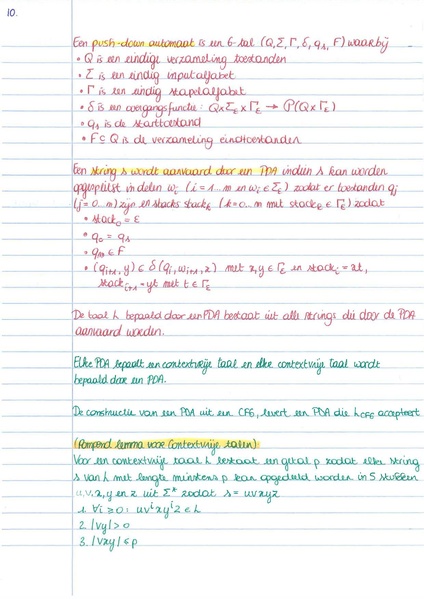 10.
Een push-down automaat is een 6-tal (Q, Σ, Γ, δ, qₛ, F) waarbij
• Q is een eindige verzameling toestanden
• Σ is een eindig inputalfabet
• Γ is een eindig stapelalfabet
• δ is een overgangsfunctie: Q×Σ_ε×Γ_ε → P(Q×Γ_ε)
• qₛ is de starttoestand
• F ⊆ Q is de verzameling eindtoestanden
Een string s wordt aanvaard door een PDA indien s kan worden
opgesplitst in delen wᵢ (i = 1...m en wᵢ ∈ Σ_ε) zodat er toestanden qⱼ
(j = 0...m) zijn en stacks stackₖ (k = 0...m met stackₖ ∈ Γ_ε) zodat
• stack₀ = ε
• q₀ = qₛ
• qₘ ∈ F
• (qᵢ₊₁, y) ∈ δ(qᵢ, wᵢ₊₁, x) met x,y ∈ Γ_ε en stackᵢ = xt,
stackᵢ₊₁ = yt met t ∈ Γ_ε
De taal L bepaald door een PDA bestaat uit alle strings die door de PDA
aanvaard worden.
Elke PDA bepaalt een contextvrije taal en elke contextvrije taal wordt
bepaald door een PDA.
De constructie van een PDA uit een CFG, levert een PDA die L_CFG accepteert
(Pompend lemma voor Contextvrije talen)
Voor een contextvrije taal L bestaat een getal p zodat elke string
s van L met lengte minstens p kan opgedeeld worden in 5 stukken
u, v, x, y en z uit Σ* zodat s = uvxyz
1. ∀i ≥ 0: uvⁱxyⁱz ∈ L
2. |vy| > 0
3. |vxy| ≤ p